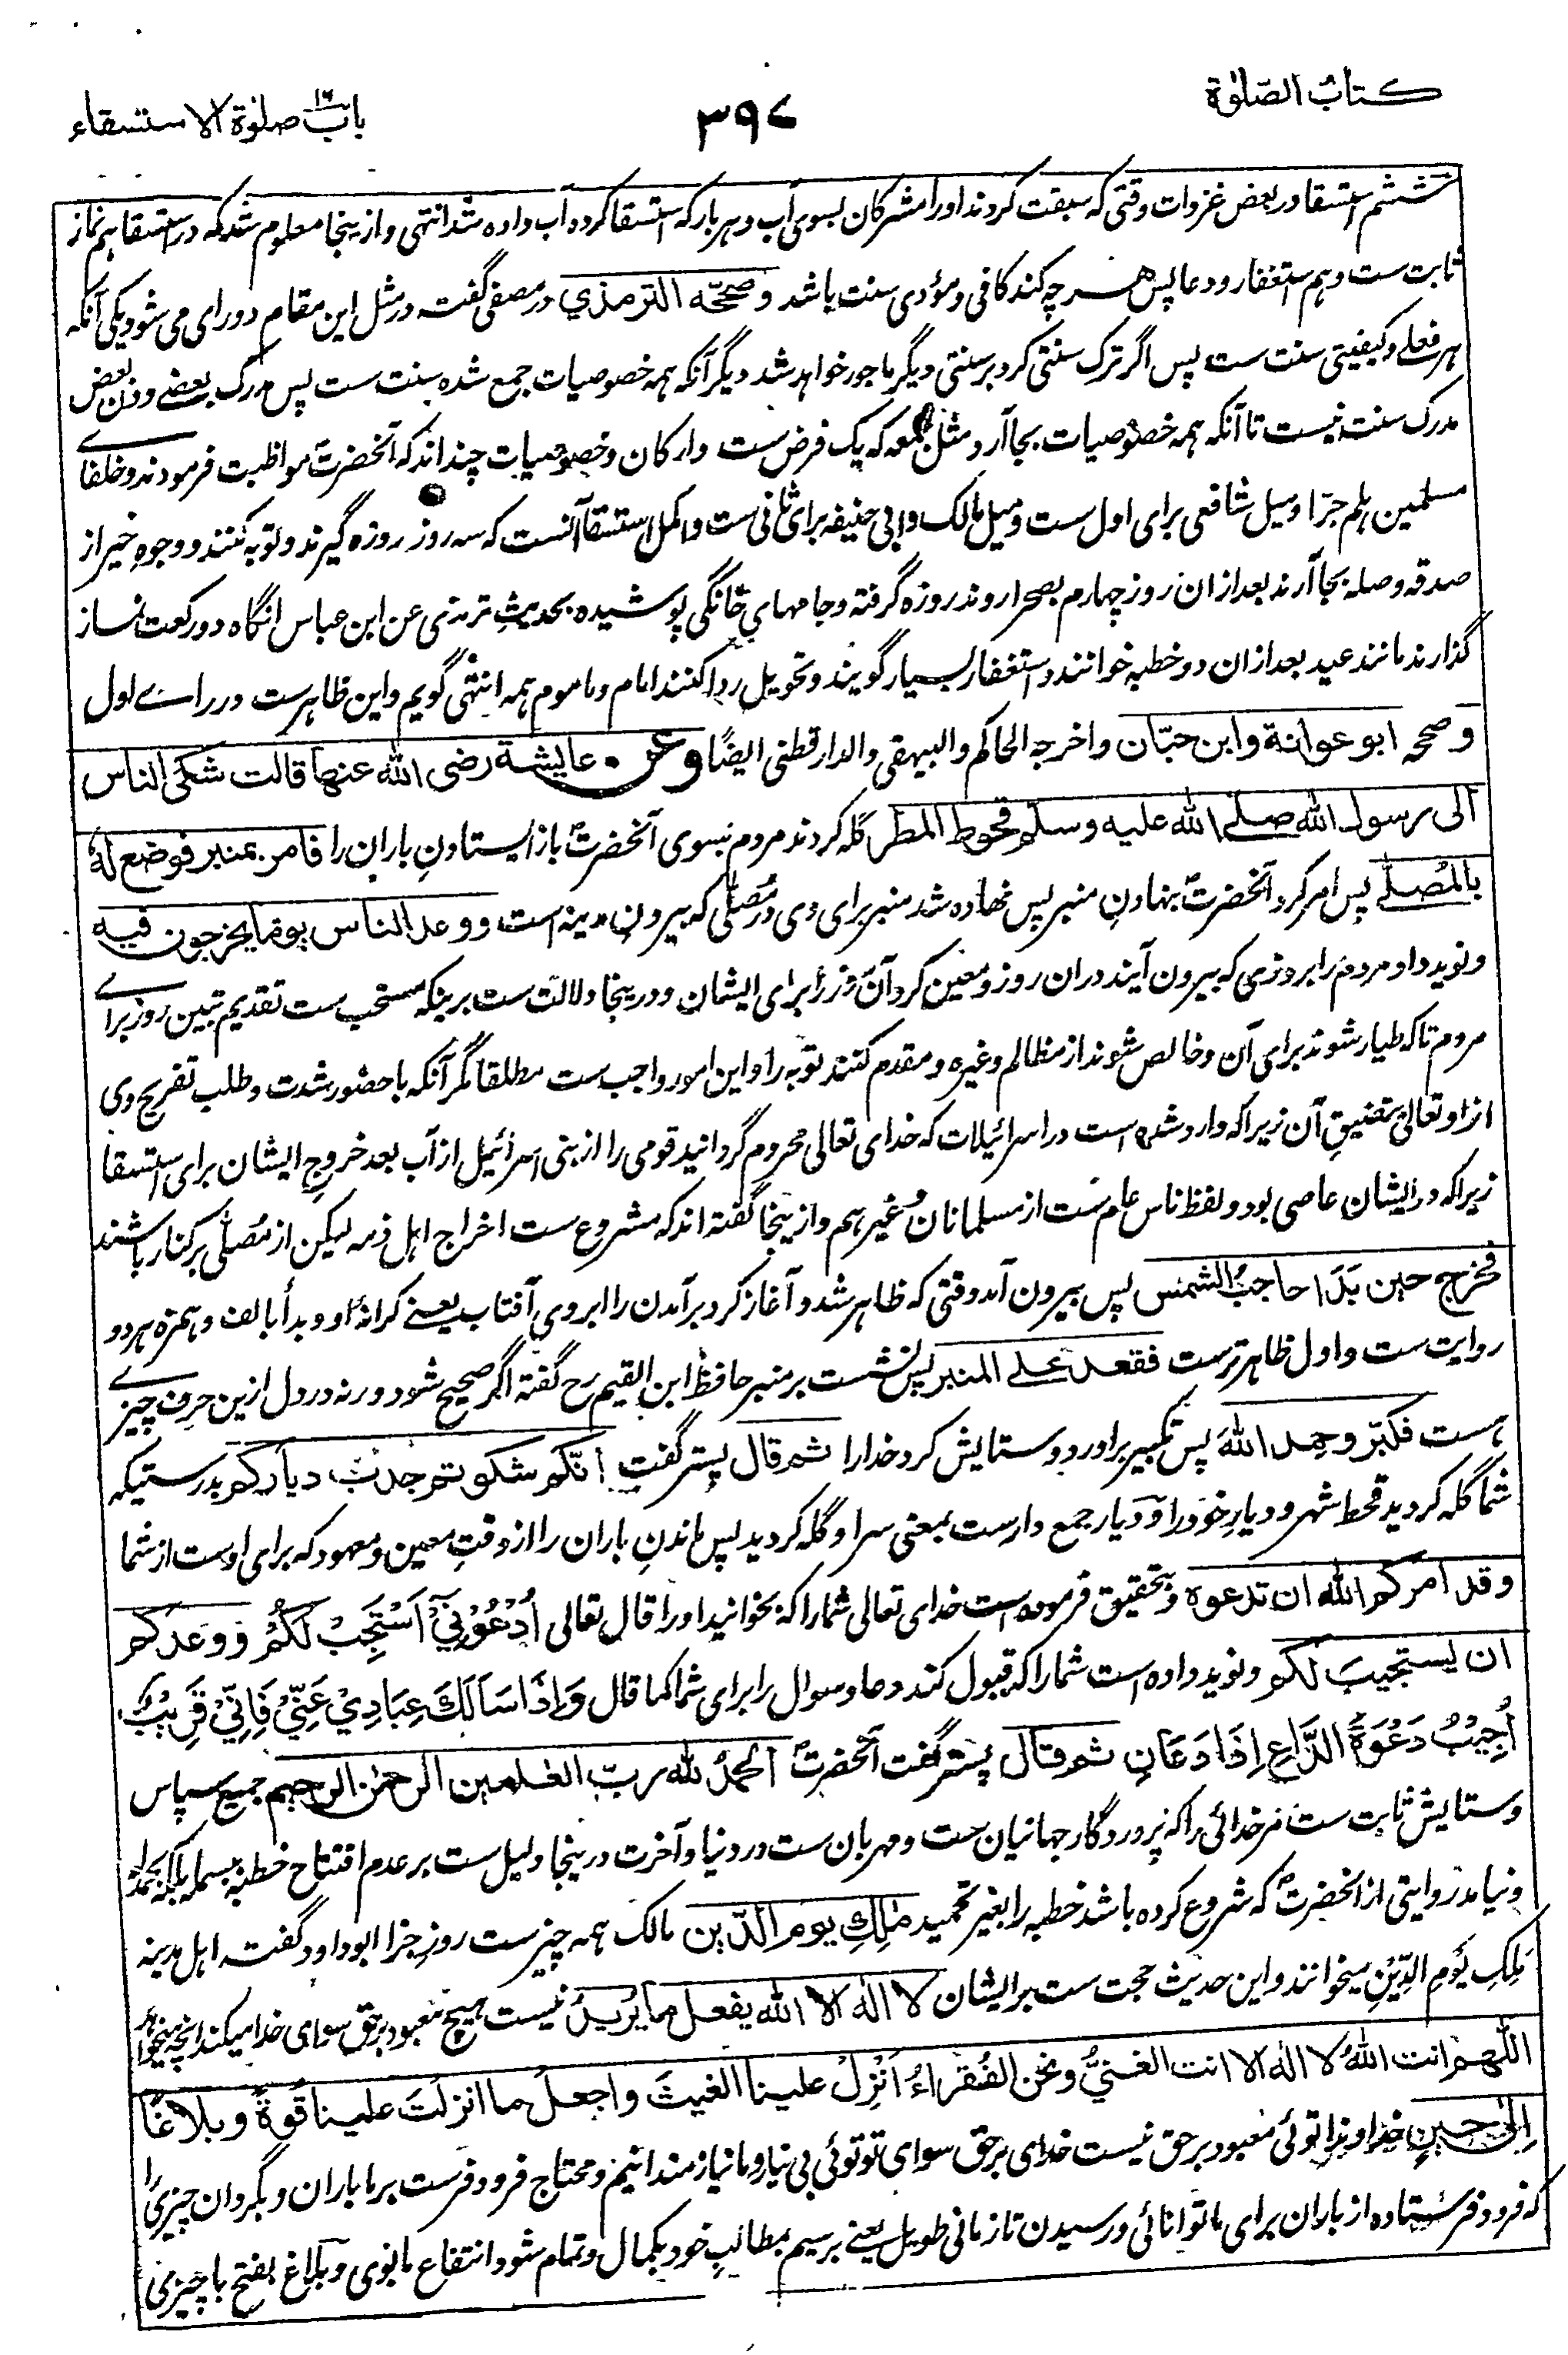 کتاب الصّلوٰة
۳۹۷
باب ۱۶ صلوٰة الاستسقاء
ششم استسقا در بعض غزوات وقتی که سبقت کردند او را مشرکان بسوی آب و هر بار که استسقا کرده آب داده شد انتهی و از ینجا معلوم شد که در استسقا هم نماز
ثابت ست و هم استغفار و دعا پس هر چه کند کافی و مؤدی سنت باشد وصححّه الترمذي در مصفی گفت در مثل این مقام دو رای می شود یکی آنکه
هر فعلے و کیفیتی سنت ست پس اگر ترک سنتی کرد بر سنتی دیگر ماجور خواهد شد دیگر آنکه همه خصوصیات جمع شده سنت ست پس مدرک بعضے دون بعض
مدرک سنت نیست تا آنکه همه خصوصیات بجا آرد مثل جمعه که یک فرض ست و ارکان و خصوصیات چند اند که آنحضرتؐ مواظبت فرمودند و خلفاے
مسلمین هلم جرّا و میل شافعی برای اول ست و میل مالک و ابی حنیفه برای ثانی ست و اکمل استسقا آنست که سه روز روزه گیرند و توبه کنند و وجوهِ خیر از
صدقه و صله بجا آرند بعد از ان روز چهارم بصحرا روند روزه گرفته و جامهای خانگی پوشیده بحدیثِ ترمذی عن ابن عباس انگاه دو رکعت نماز
گذارند مانند عید بعد از ان دو خطبه خوانند و استغفار بسیار گویند و تحویل ردا کنند امام و ماموم همه انتهی گویم و این ظاهرست در راے اول
و صححه ابو عوانة وابن حبّان و اخرجه الحاکم و البیهقی و الدارقطنی ایضًا وعن عایشة رضی الله عنها قالت شکی الناس
الی رسول الله صلے الله علیه وسلم قحوط المطر گله کردند مردم بسوی آنحضرتؐ باز ایستادنِ باران را فامر بمنبر فوضع له
بالمُصلّے پس امر کرد آنحضرتؐ بنهادنِ منبر پس نهاده شد منبر برای وی در مُصلّی که بیرون مدینه است ووعد الناس یوما یخرجون فیه
و نوید داد مردم را بروزی که بیرون آیند دران روز و معین کرد آن روز را برای ایشان و درینجا دلالت ست برینکه مستحب ست تقدیم تبین روز براے
مردم تاکه طیار شوند برای آن و خالص شوند از مظالم و غیره و مقدم کنند توبه را و این امور واجب ست مطلقا مگر آنکه با حضور شدت و طلب تفریح وی
از او تعالی بتضیقِ آن زیرا که وارد شده است در اسرائیلات که خدای تعالی محروم گردانید قومی را از بنی اسرائیل از آب بعد خروجِ ایشان برای استسقا
زیرا که در ایشان عاصی بود و لفظ ناس عام ست از مسلمانان و غیر هم و از ینجا گفته اند که مشروع ست اخراج اهل ذمه لیکن از مُصلّی بر کنار باشند
فخرج حین بَدَا حاجبُ الشمس پس بیرون آمد وقتی که ظاهر شد و آغاز کرد برآمدن را ابروی آفتاب یعنے کرانهٔ او و بدأ بالف و همزه هر دو
روایت ست و اول ظاهر ترست فقعد علے المنبر پس نشست بر منبر حافظ ابن القیم رح گفته اگر صحیح شود ورنه در دل ازین حرف چیزے
هست فکبّر وحمد اللهَ پس تکبیر برآورد و ستایش کرد خدا را ثم قال پستر گفت انّکم شکوتم جدبَ دیارکم بدرستیکه
شما گله کردید قحط شهر و دیارِ خود را و دیار جمع دارست بمعنی سرا و گله کردید پس ماندنِ باران را از وقتِ معین و معهود که برای اوست از شما
وقد امرکم الله ان تدعوه و بتحقیق فرموده است خدای تعالی شما را که بخوانید او را قال تعالی اُدْعُوْنِیْٓ اَسْتَجِبْ لَکُمْ ووعدکم
ان یستجیبَ لکم و نوید داده است شما را که قبول کند دعا و سوال را برای شما کما قال وَاِذَا سَاَلَكَ عِبَادِيْ عَنِّيْ فَاِنِّيْ قَرِیْبٌ
اُجِیْبُ دَعْوَةَ الدَّاعِ اِذَا دَعَانِ ثم قال پستر گفت آنحضرتؐ الحمدُ لله ربّ العٰلمین الرحمٰن الرحیم جمیع سپاس
و ستایش ثابت ست مر خدائی را که پروردگار جهانیان ست و مهربان ست در دنیا و آخرت درینجا دلیل ست بر عدم افتتاح خطبه ببسمله بلکه بحمدله
و نیامد در روایتی از آنحضرتؐ که شروع کرده باشد خطبه را بغیر تحمید مٰلِكِ یوم الدّین مالک همه چیزست روزِ جزا ابو داود گفت اهل مدینه
مَلِكِ یَوْمِ الدِّیْنِ میخوانند و این حدیث حجت ست بر ایشان لا اله الا الله یفعل ما یُریدُ نیست هیچ معبود برحق سوای خدا میکند انچه میخواهد
اللّٰهم انت اللهُ لا اله الا انت الغنیُّ ونحن الفُقراءُ اَنْزِلْ علینا الغیثَ واجعلْ ما انزلتَ علینا قُوةً وبلاغًا
اِلیٰ حینٍ خداوندا توئی معبود برحق نیست خدای برحق سوای تو توئی بی نیاز و ما نیازمندانیم و محتاج فرود فرست بر ما باران و بگردان چیزی را
که فرود فرستاده از باران برای ما توانائی و رسیدن تا زمانی طویل یعنے برسیم بمطالبِ خود بکمال و تمام شود انتفاع ما بوی و بلاغ بفتح با چیزی